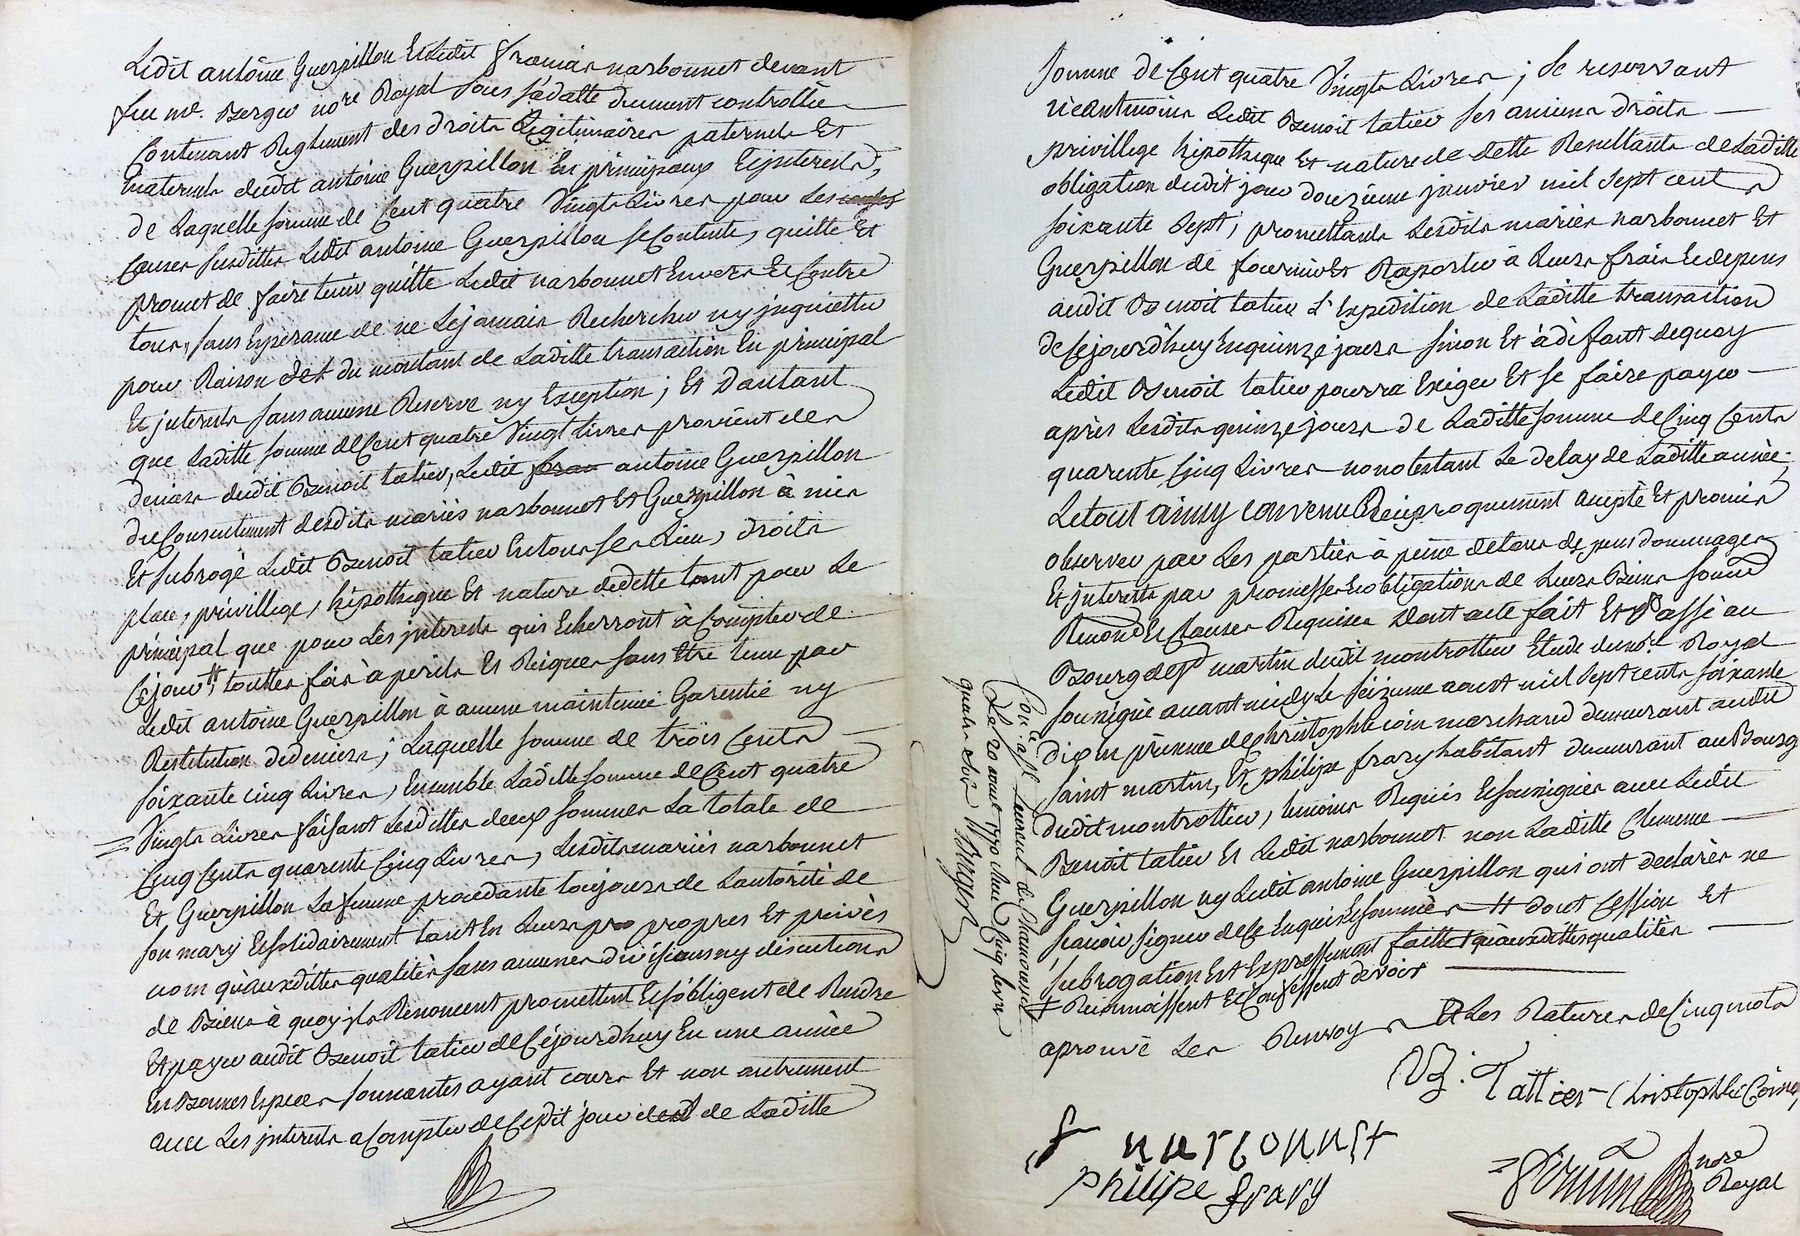 Ledit antoine Guerpillon Et Ledit francois narbonnet devant
feu me. Berger nore Royal sous sa datte duement controllée
Contenant Reglement des droits Legitimaires paternels Et
maternels dudit antoine Guerpillon En principaux Et jnterests,
de Laquelle somme de Cent quatre Vingts Livres pour Les causes
Causes susdittes Ledit antoine Guerpillon se Contente, quitte Et
promet de faire tenir quitte Ledit narbonnet Envers Et Contre
tous, sans Esperance de ne Le jamais Rechercher ny jnquietter
pour Raison du montant de Laditte transaction En principal
Et jnterests sans aucune Reserve ny Exception; Et D'autant
que Laditte somme de Cent quatre Vingt Livres provient des
deniers dudit Benoit tatier, Ledit fran antoine Guerpillon
du Consentement desdits mariés narbonnet Et Guerpillon à mis
Et subrogé Ledit Benoit tatier En tous ses Lieu, droits
place, privillege, hipotheque Et nature de dette tant pour Le
principal que pour Les jnterests qui Echerront à Compter de
Cejour # touttes fois à perils Et Risques sans Etre tenu par
Ledit antoine Guerpillon à aucune maintenüe Garentie ny
Restitution de deniers; Laquelle somme de trois Cents
soixante cinq Livres, Ensemble Laditte somme de Cent quatre
= Vingts Livres faisant Lesdittes deux sommes La totale de
Cinq Cents quarente Cinq Livres, Lesdits mariés narbonnet
Et Guerpillon La femme procedante toujours de Lautorité de
son mary Et solidairement tant En Leurs pro propres Et privés
nom qu'auxdittes qualités sans aucunes divisions ny discutions
de Biens à quoy jls Renoncent promettent Et s'obligent de Rendre
Et payer audit Benoit tatier de Cejourdhuy En une année
En Bonnes Especes sonnantes ayant cours Et non autrement
avec Les jnterests a Compter de Cedit jour de Laditte
somme de Cent quatre Vingts Livres; Se reservant
néantmoins Ledit Benoit tatier ses anciens droits
privillege hipotheque Et nature de dette Resultants de Laditte
obligation dudit jour douzieme janvier mil sept cents
soixante sept, promettants Lesdits mariés narbonnet Et
Guerpillon de fournir Et Raporter à Leurs frais Et depens
audit Benoit tatier L'Expedition de Laditte transaction
de Cejourdhuy En quinze jours sinon Et à défaut dequoy
Ledit Benoit tatier pourra Exiger Et se faire payer
après Lesdits quinze jours de Laditte somme de Cinq Cents
quarente Cinq Livres nonobstant Le delay de Laditte année;
Le tout ainsy convenu Reciproquement accepté Et promis
observer par Les parties à peine de tous depens dommages
Et jnterests par promesse Et obligations de Leurs Biens
Et Clauses Requises Dont acte fait Et Passé au
Bourg de St martin dudit montrottier Etude du nore. Royal
soussigné avant midy Le seizieme aoust mil sept cents soixante
dix En présence de christophle coin marchand demeurant audit
saint martin, Et philipe frary habitant demeurant au Bourg
dudit montrottier, temoins Requis Et soussignés avec Ledit
Benoit tatier Et Ledit narbonnet non Laditte Clemence
Guerpillon ny Ledit antoine Guerpillon qui ont declarés ne
sçavoir signer de Ce Enquis Et sommés # dont Cession Et
subrogation Est Expressement faitte qu'auxdittes qualités
# Reconnoissent Et Confessent devoir
aprouvé Les Renvoys Et Les Ratures de Cinq mots
B. Tattier Christophle Coin
f narbonnet
philipe frary
nore
Royal
Le 20 aout 1770 Reçu Cinq Livres
quatre sols Berger